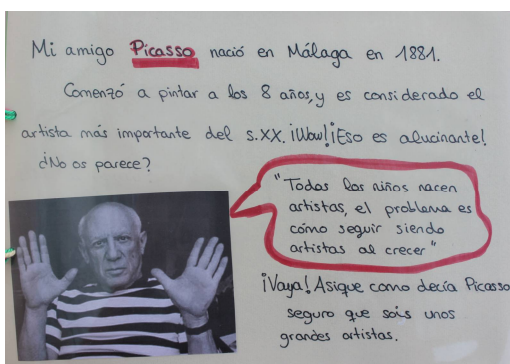 Mi amigo Picasso nació en Málaga en 1881.
Comenzó a pintar a los 8 años, y es considerado el
artista más importante del s.XX. ¡Wow! ¡Eso es alucinante!
¿No os parece?
"Todos los niños nacen
artistas, el problema es
cómo seguir siendo
artistas al crecer"
¡Vaya! Asique como decía Picasso
seguro que sois unos
grandes artistas.